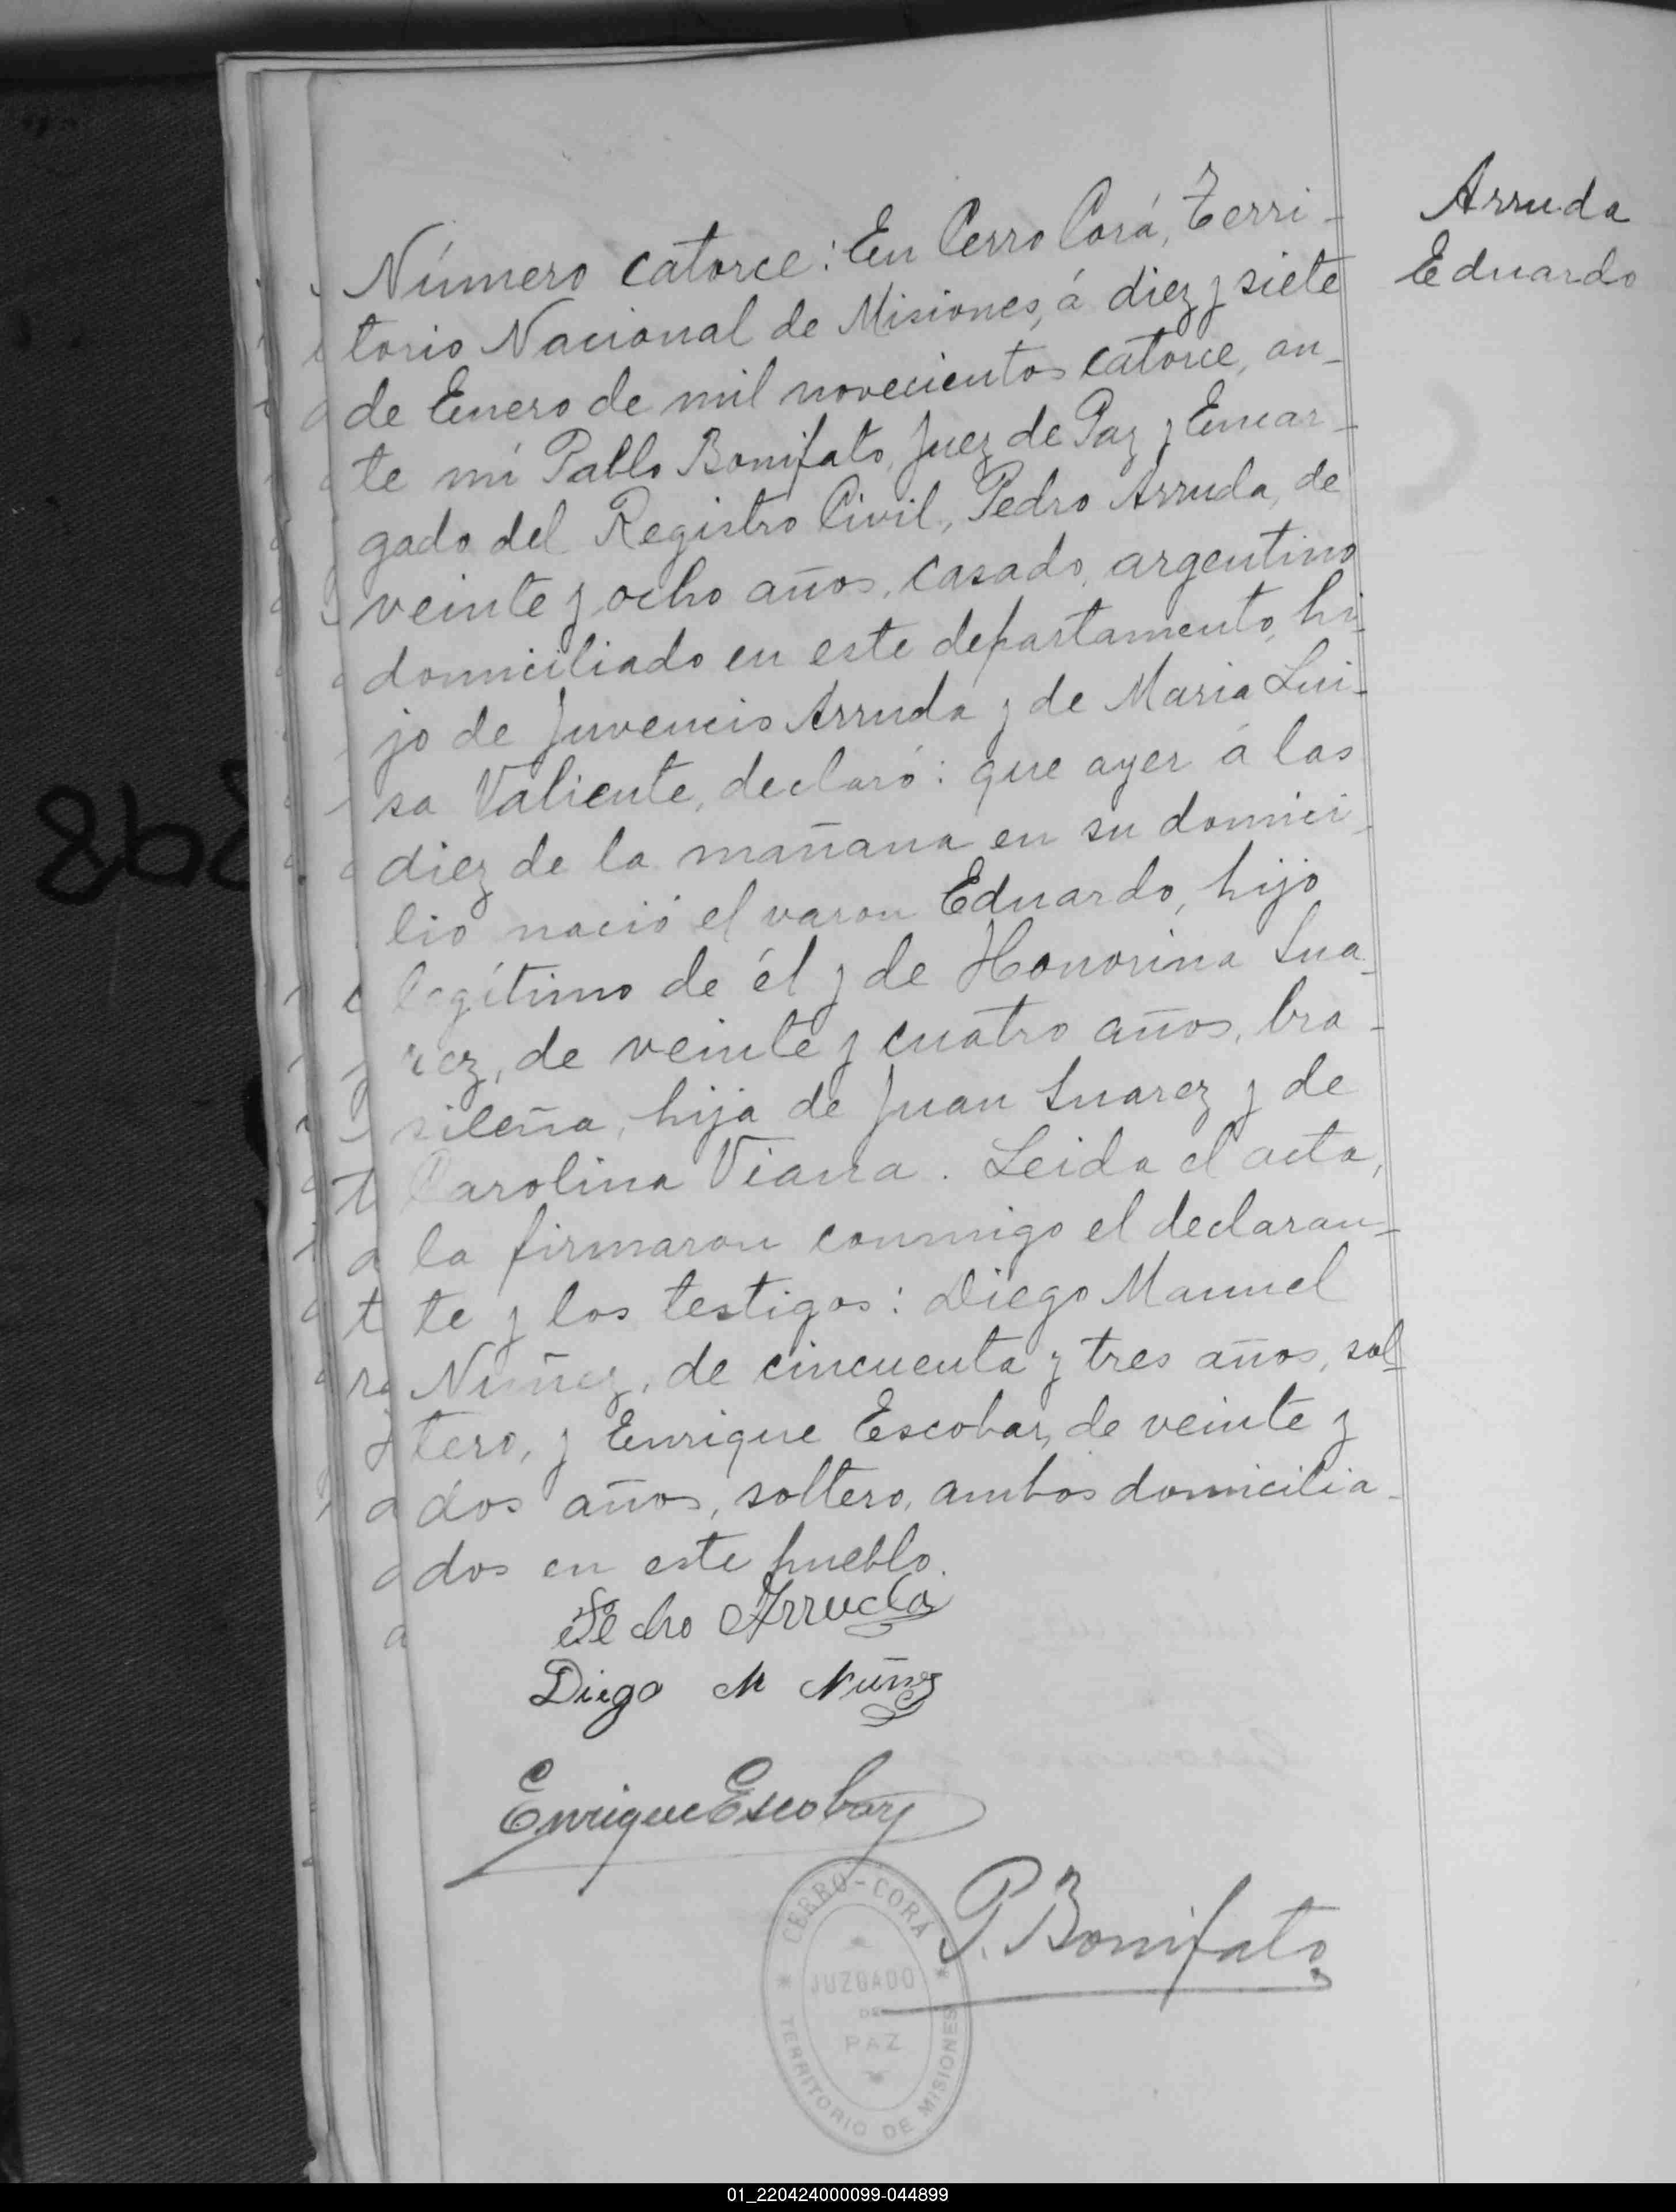 Arruda
Eduardo
Número catorce: En Cerro Corá, Terri-
torio Nacional de Misiones, á diez y siete
de Enero de mil novecientos catorce, an-
te mi Pablo Bonifato, Juez de Paz y Encar-
gado del Registro Civil, Pedro Arruda, de
veinte y ocho años, casado, argentino
domiciliado en este departamento, hi-
jo de Juvencio Arruda y de Maria Lui-
sa Valiente, declaró: que ayer á las
diez de la mañana en su domici-
lio nació el varon Eduardo, hijo
legítimo de él y de Honorina Sua-
rez, de veinte y cuatro años, bra-
sileña, hija de Juan Suarez y de
Carolina Viana. Leida el acta,
la firmaron conmigo el declaran-
te y los testigos: Diego Manuel
Nuñez, de cincuenta y tres años, sol-
tero, y Enrique Escobar, de veinte y
dos años, soltero, ambos domicilia-
dos en este pueblo.
Pedro Arruda
Diego M Nuñez
Enrique Escobar
P. Bonifato
CERRO-CORÁ
JUZGADO
DE
PAZ
TERRITORIO DE MISIONES
01_220424000099-044899